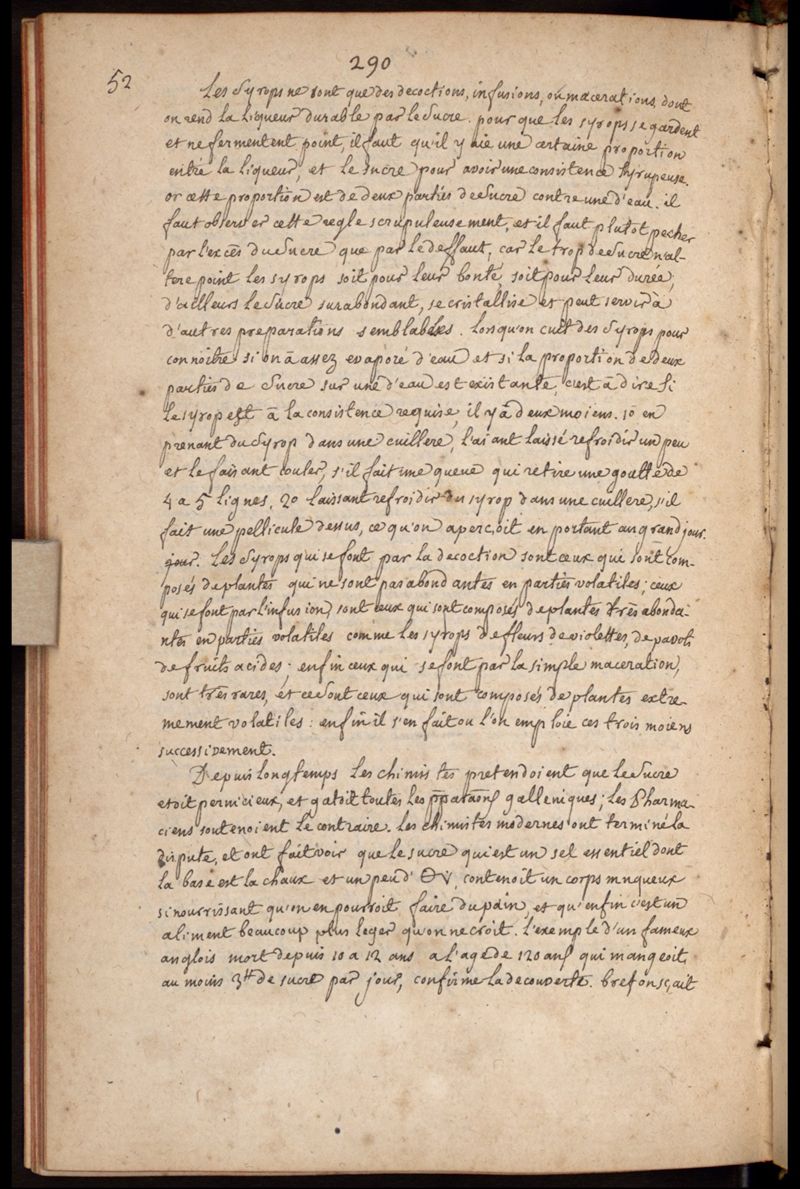 290
52
Les Syrops ne sont que des decoctions, infusions, ou macerations, dont
on rend la liqueur durable par le Sucre. pour que les syrops se gardent
et ne fermentent point, il faut qu'il y aie une certaine proportion
entre la liqueur, et le sucre pour avoir une consistence syrupeuse.
or cette proportion est de deux parties de Sucre contre une d'eau. il
faut observer cette regle scrupuleusement, et il faut plutot pecher
par l'excés du Sucre que par le deffaut, car le trop de Sucre n'al-
tere point les syrops soit pour leur bonté, soit pour leur durée;
d'ailleurs le Sucre surabondant, se cristallise et peut servir à
d'autres preparations semblables. Lorsqu'on cuit des Syrops pour
connoitre si on â assez evaporé d'eau et si la proportion de deux
parties de Sucre sur une d'eau est existante, c'est â dire si
le syrop est â la consistence requise, il y â deux moiens. 1o en
prenant du Syrop dans une cuillere, l'aiant laissé refroidir un peu
et le faisant couler, s'il fait une queue qui retire une goutte de
4 a 5 lignes, 2o laissant refroidir du syrop dans une cuillere, s'il
fait une pellicule dessus, ce qu'on apercoit en portant au grand jour.
jour. Les Syrops qui se font par la decoction sont ceux qui sont com-
posés de plantes qui ne sont pas abondantes en parties volatiles; ceux
qui se font par l'infusion, sont ceux qui sont composés de plantes trés abonda-
ntes en parties volatiles comme les syrops de fleurs de violettes, de pavots
de fruits acides; enfin ceux qui se font par la simple maceration,
sont trés rares, et ce sont ceux qui sont composés de plantes extre-
mement volatiles: enfin il s'en fait ou l'on emploie ces trois moiens
successivement.
Depuis longtemps les chimistes pretendoient que le Sucre
etoit pernicieux, et gatoit toutes les galleniques; les Pharma-
ciens soutenoient le contraire. Les chimistes modernes ont terminé la
dispute, et ont fait voir que le sucre qui est un sel essentiel dont
la base est la chaux et un peu d' contenoit un corps muqueux
si nourrissant qu'on en pourroit faire du pain, et qu'enfin c'est un
aliment beaucoup plus leger qu'on ne croit. L'exemple d'un fameux
anglois mort depuis 10 a 12 ans a l'age de 120 ans qui mangeoit
au moins 3 de sucre par jour, confirme la decouverte. bref on sçait